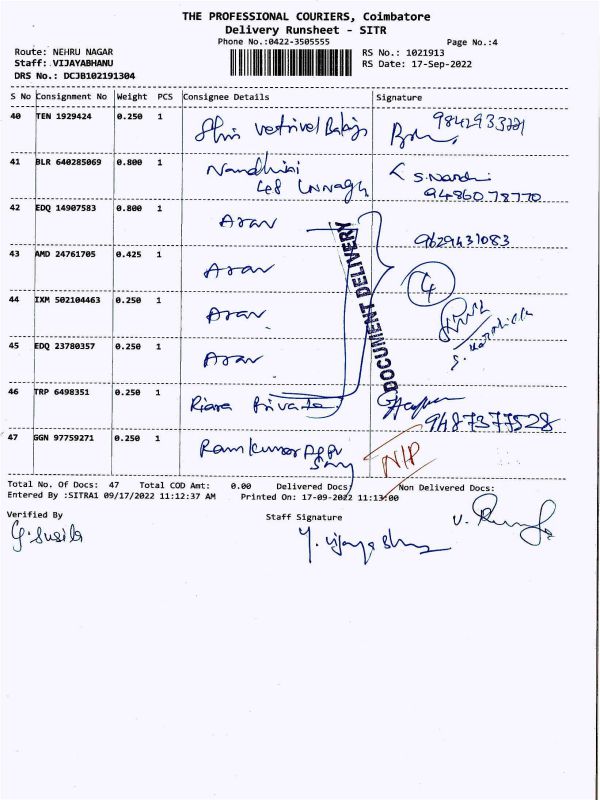 THE PROFESSIONAL COURIERS, Coimbatore
Delivery Runsheet - SITR
Phone No.:0422-3505555 Page No.:4
Route: NEHRU NAGAR RS No.: 1021913
Staff: VIJAYABHANU RS Date: 17-Sep-2022
DRS No.: DCJB102191304
S No Consignment No Weight PCS Consignee Details Signature
40 TEN 1929424 0.250 1
41 BLR 640285069 0.800 1 Nandhini S. Nandhi
9486078770
42 EDQ 14907583 0.800 1 Arav 9629431083
43 AMD 24761705 0.425 1 Arav 4
44 IXM 502104463 0.250 1 Arav
45 EDQ 23780357 0.250 1 Arav
DOCUMENT DELIVERY
46 TRP 6498351 0.250 1 Private 9487377528
47 GGN 97759271 0.250 1 Ramkumar N/P
Total No. Of Docs: 47 Total COD Amt: 0.00 Delivered Docs: Non Delivered Docs:
Entered By :SITRA1 09/17/2022 11:12:37 AM Printed On: 17-09-2022 11:13:00
Verified By Staff Signature